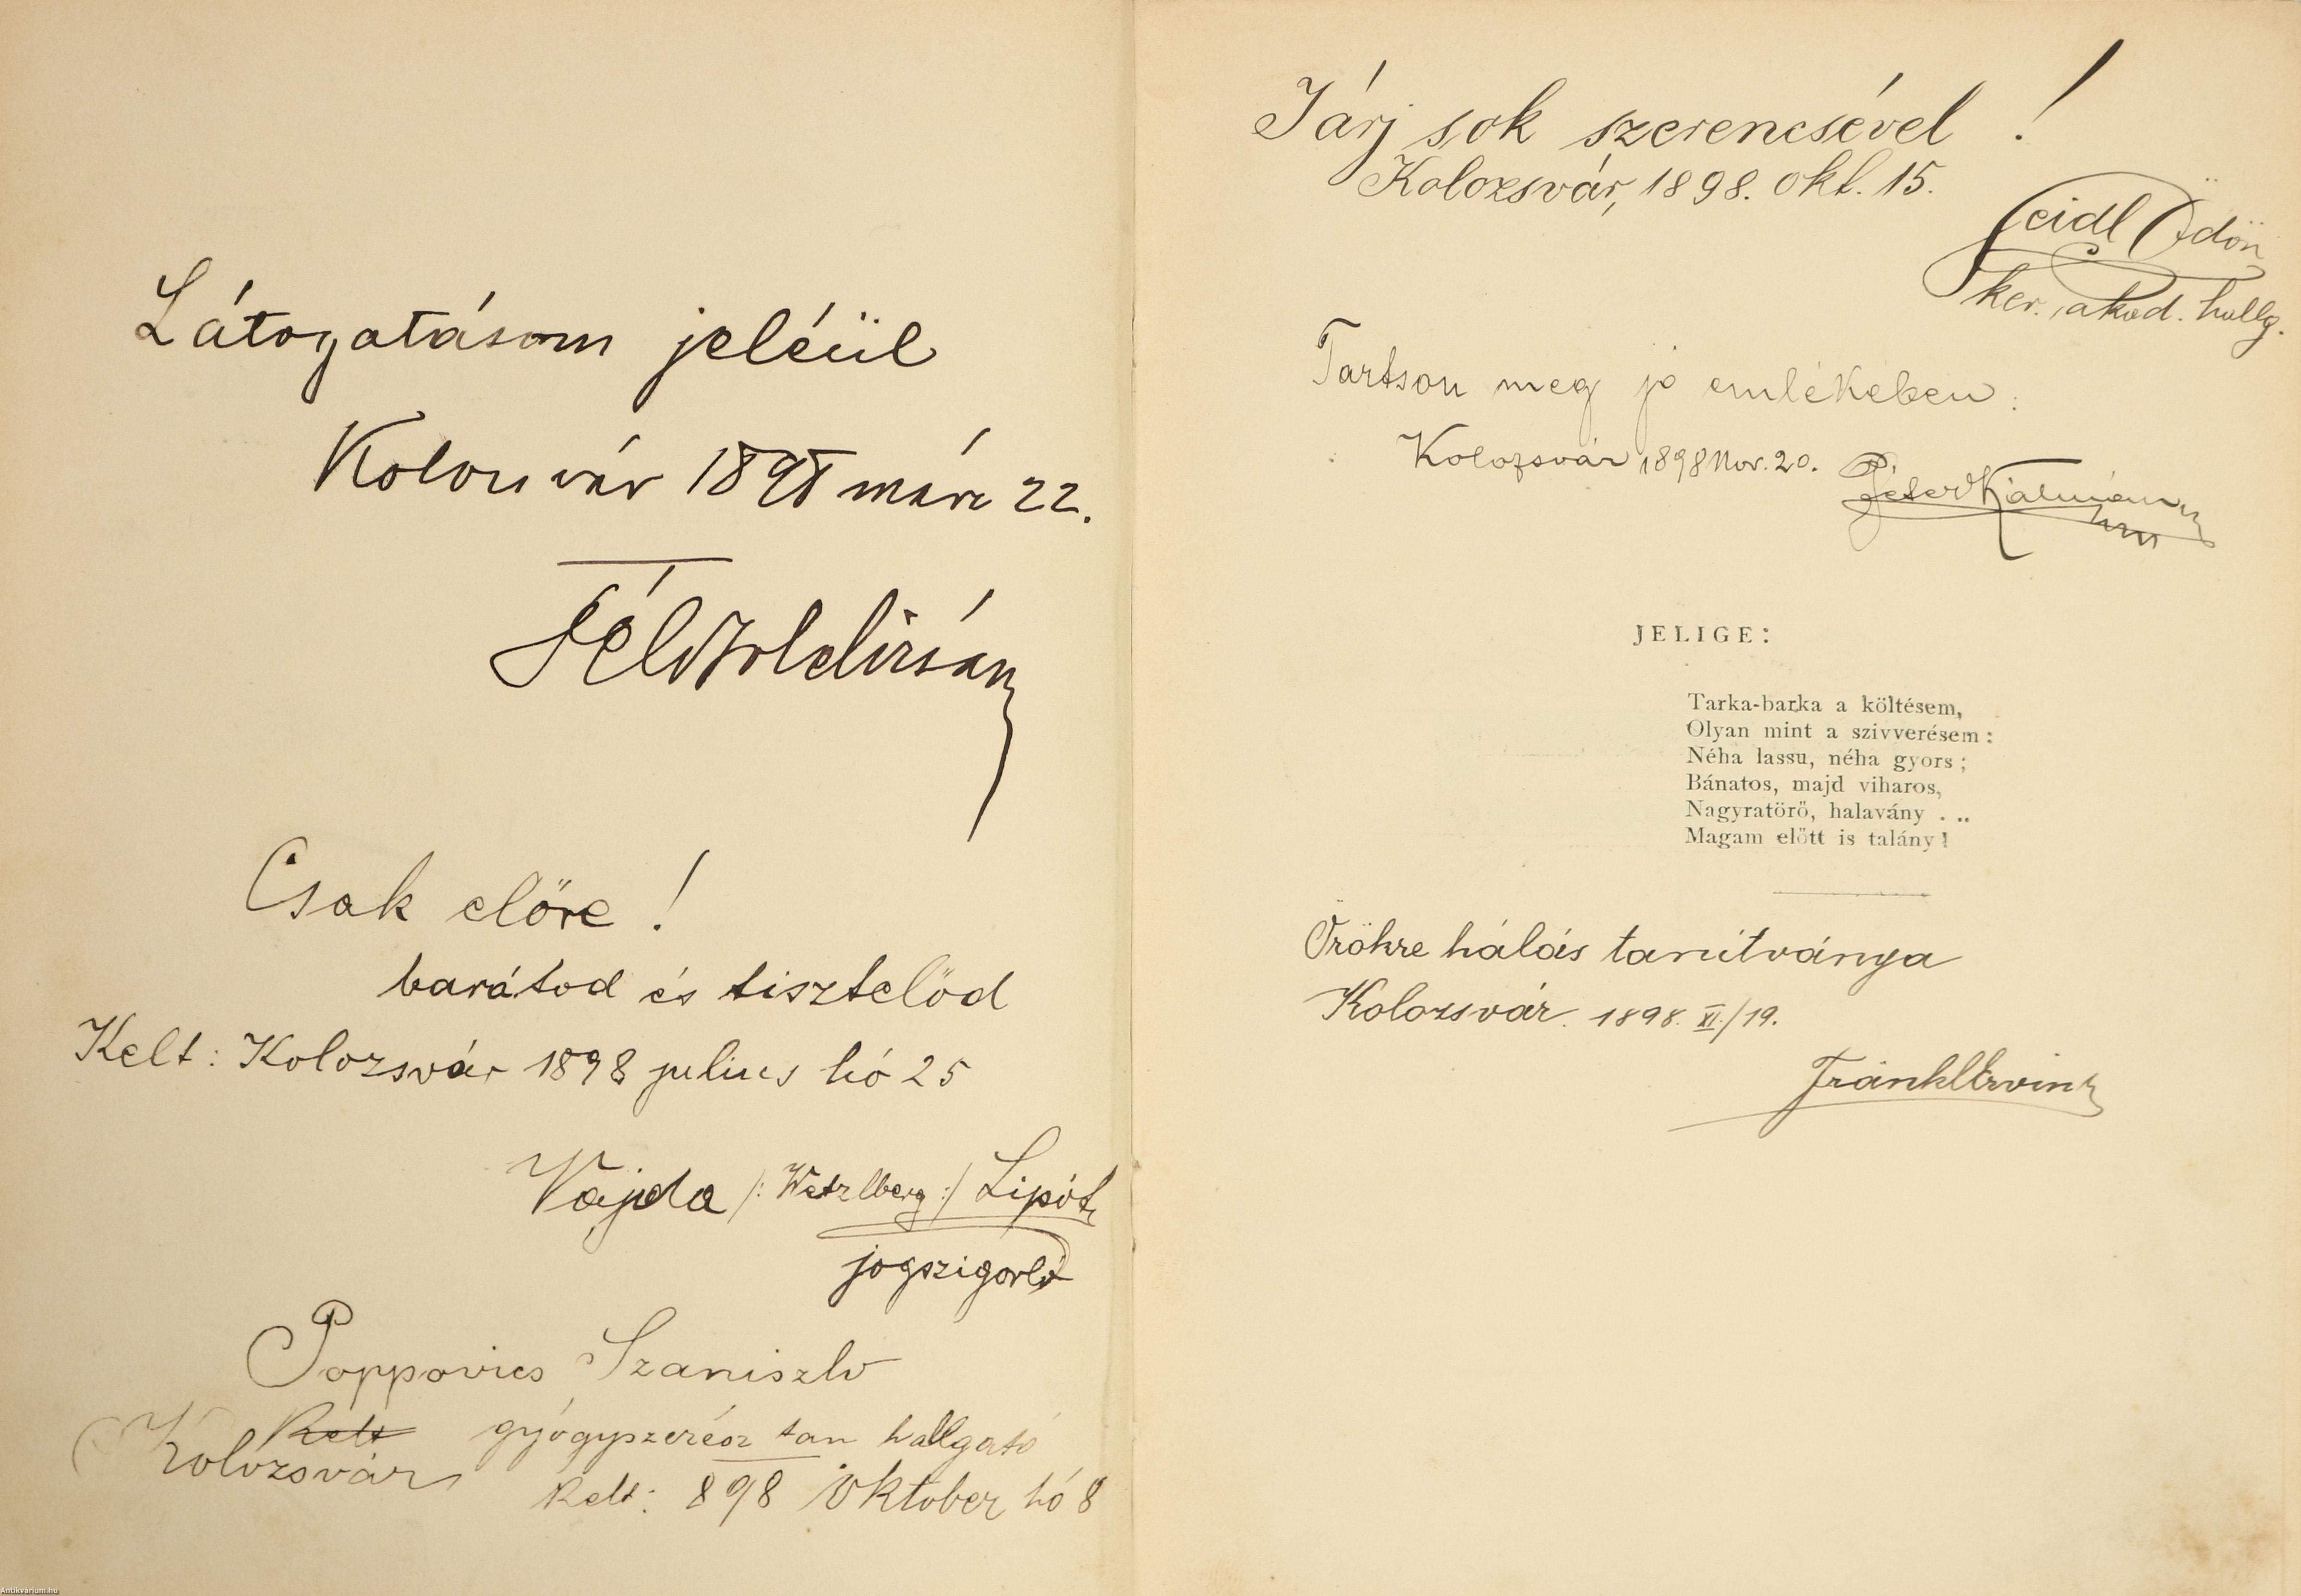 Látogatásom jeléül
Kolozsvár 1898 márc 22.
Csak előre!
barátod és tisztelőd
Kelt: Kolozsvár 1898 julius hó 25
Vajda /: Wetzlberg :/ Lipót
jogszigorló
Poppovics Szaniszló
Kelt gyógyszerész tan hallgató
Kolozsvár
Kelt: 898 Oktober hó 8
Járj sok szerencsével!
Kolozsvár, 1898. okt. 15.
Seidl Ödön
ker. akad. hallg.
Tartson meg jó emlékében:
Kolozsvár 1898 Nov. 20. Péter Kálmán
JELIGE:
Tarka-barka a költésem,
Olyan mint a szivverésem:
Néha lassu, néha gyors;
Bánatos, majd viharos,
Nagyratörő, halavány . ..
Magam előtt is talány!
Örökre hálás tanítványa
Kolozsvár. 1898. XI./19.
Fränkl Ervin
Antikvárium.hu